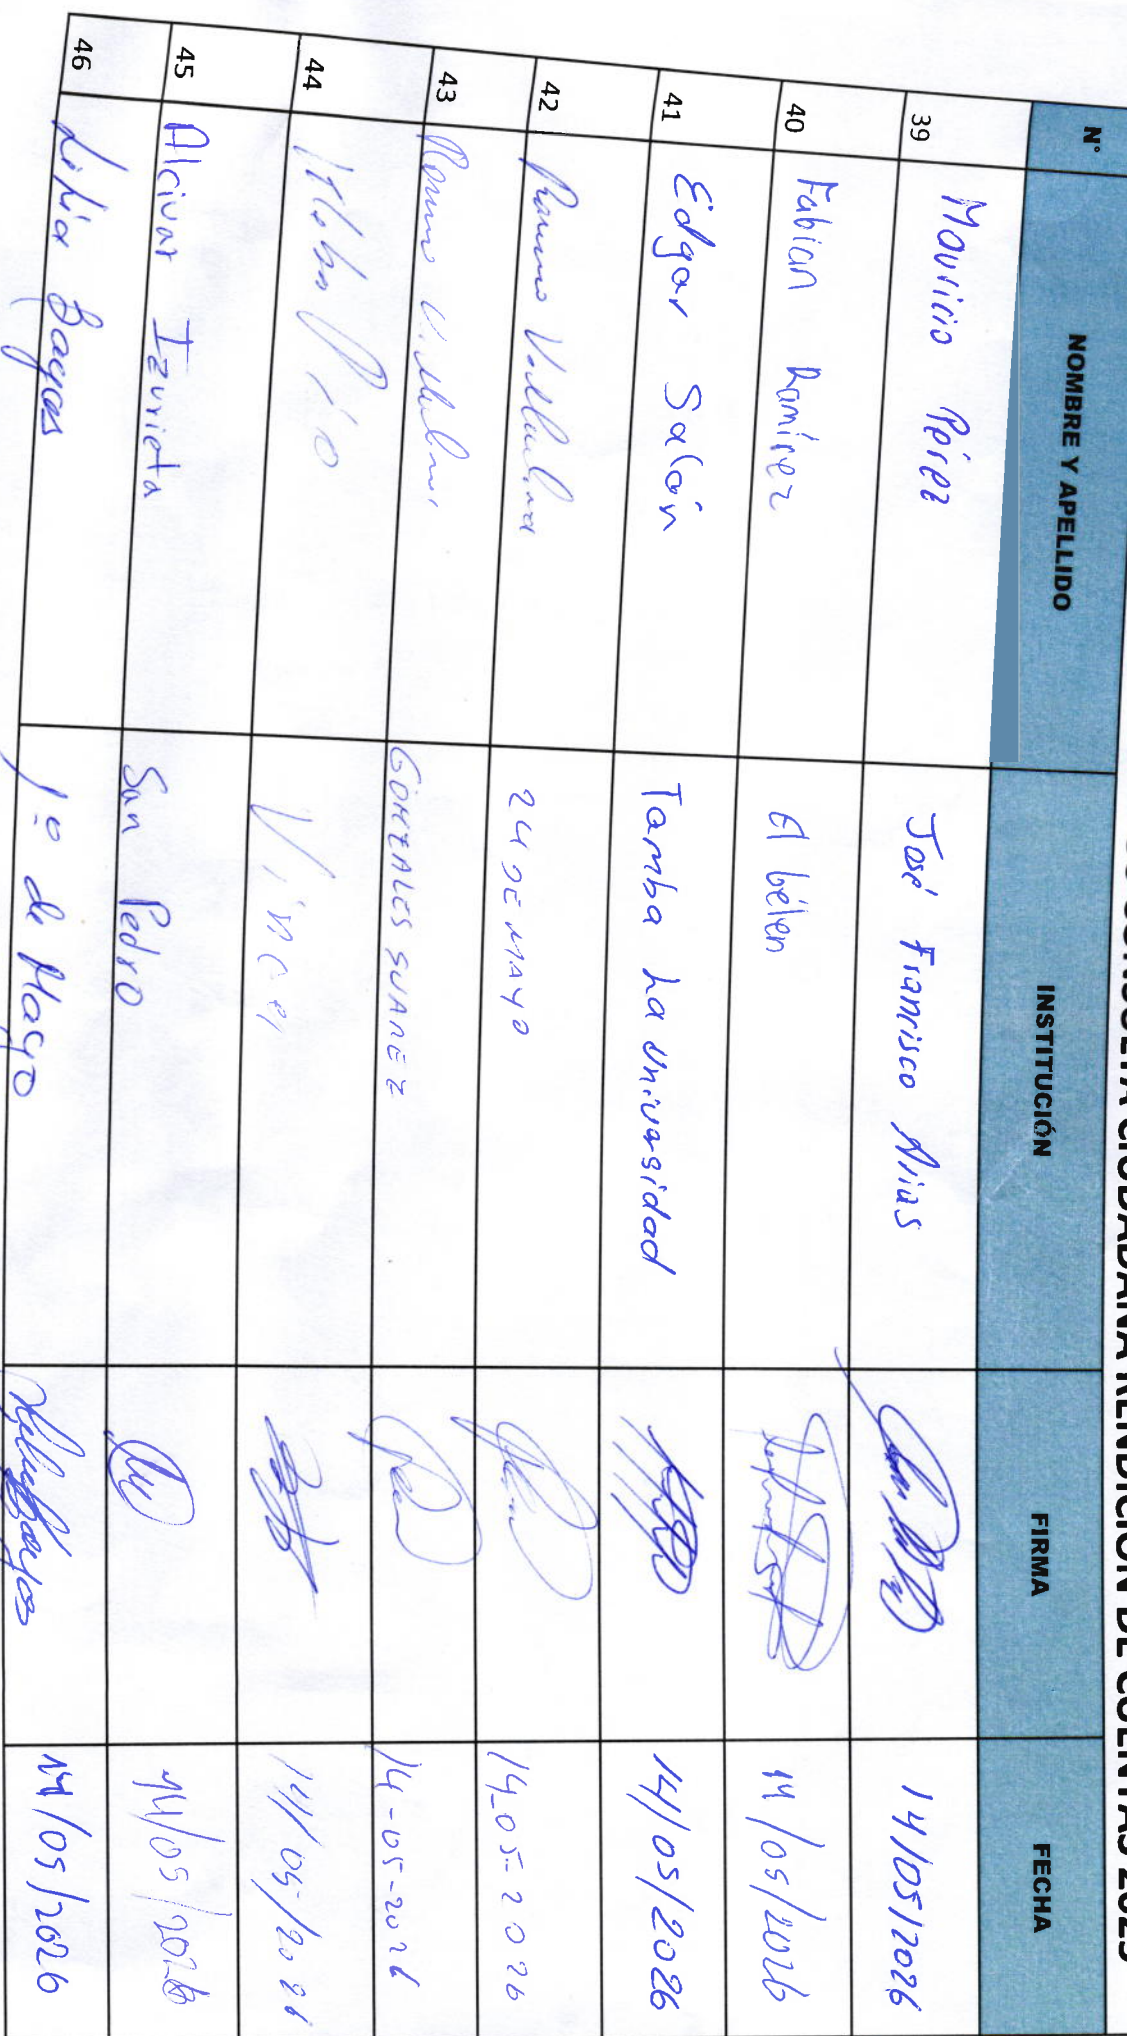 CONSULTA CIUDADANA RENDICIÓN DE CUENTAS 2025
N° NOMBRE Y APELLIDO INSTITUCIÓN FIRMA FECHA
39 Mauricio Pérez José Francisco Arias 14/05/2026
40 Fabian Ramirez El bélen 14/05/2026
41 Edgar Salán Tamba La Universidad 14/05/2026
42 24 DE MAYO 14-05-2026
43 GONZALES SUAREZ 14-05-2026
44 14/05/2026
45 Alcivar Izurieta San Pedro 14/05/2026
46 Lilia Bayas 1º de Mayo 14/05/2026